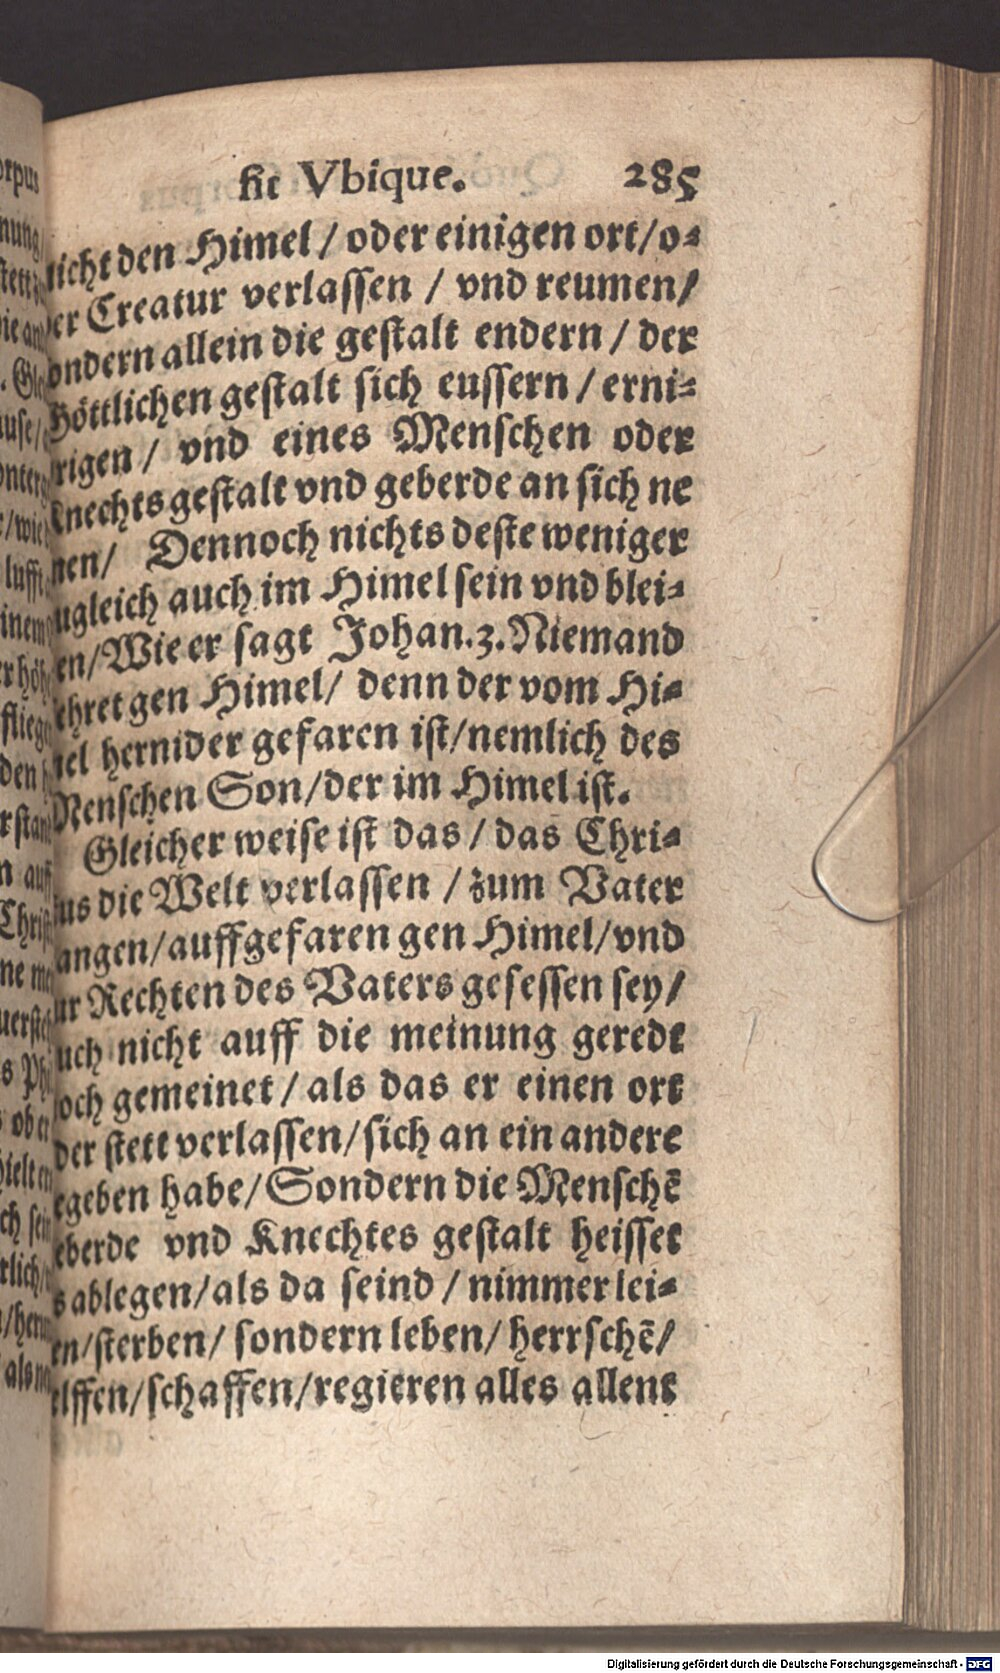 sit Vbique. 285
nicht den Himel / oder einigen ort/o⸗
der Creatur verlassen / vnd reumen/
sondern allein die gestalt endern / der
Göttlichen gestalt sich eussern / erni⸗
drigen / vnd eines Menschen oder
Knechts gestalt vnd geberde an sich ne
men/ Dennoch nichts deste weniger
zugleich auch im Himel sein vnd blei⸗
ben/Wie er sagt Johan.3.Niemand
fehret gen Himel/ denn der vom Hi⸗
mel hernider gefaren ist/nemlich des
Menschen Son/der im Himel ist.
Gleicher weise ist das / das Chri⸗
stus die Welt verlassen / zum Vater
gangen/auffgefaren gen Himel/vnd
zur Rechten des Vaters gesessen sey/
auch nicht auff die meinung geredt
noch gemeinet / als das er einen ort
oder stett verlassen/sich an ein andere
begeben habe/Sondern die Menschẽ
geberde vnd Knechtes gestalt heisset
es ablegen/als da seind / nimmer lei⸗
den/sterben/ sondern leben/ herrschẽ/
helffen/schaffen/regieren alles allent
Digitalisierung gefördert durch die Deutsche Forschungsgemeinschaft - DFG